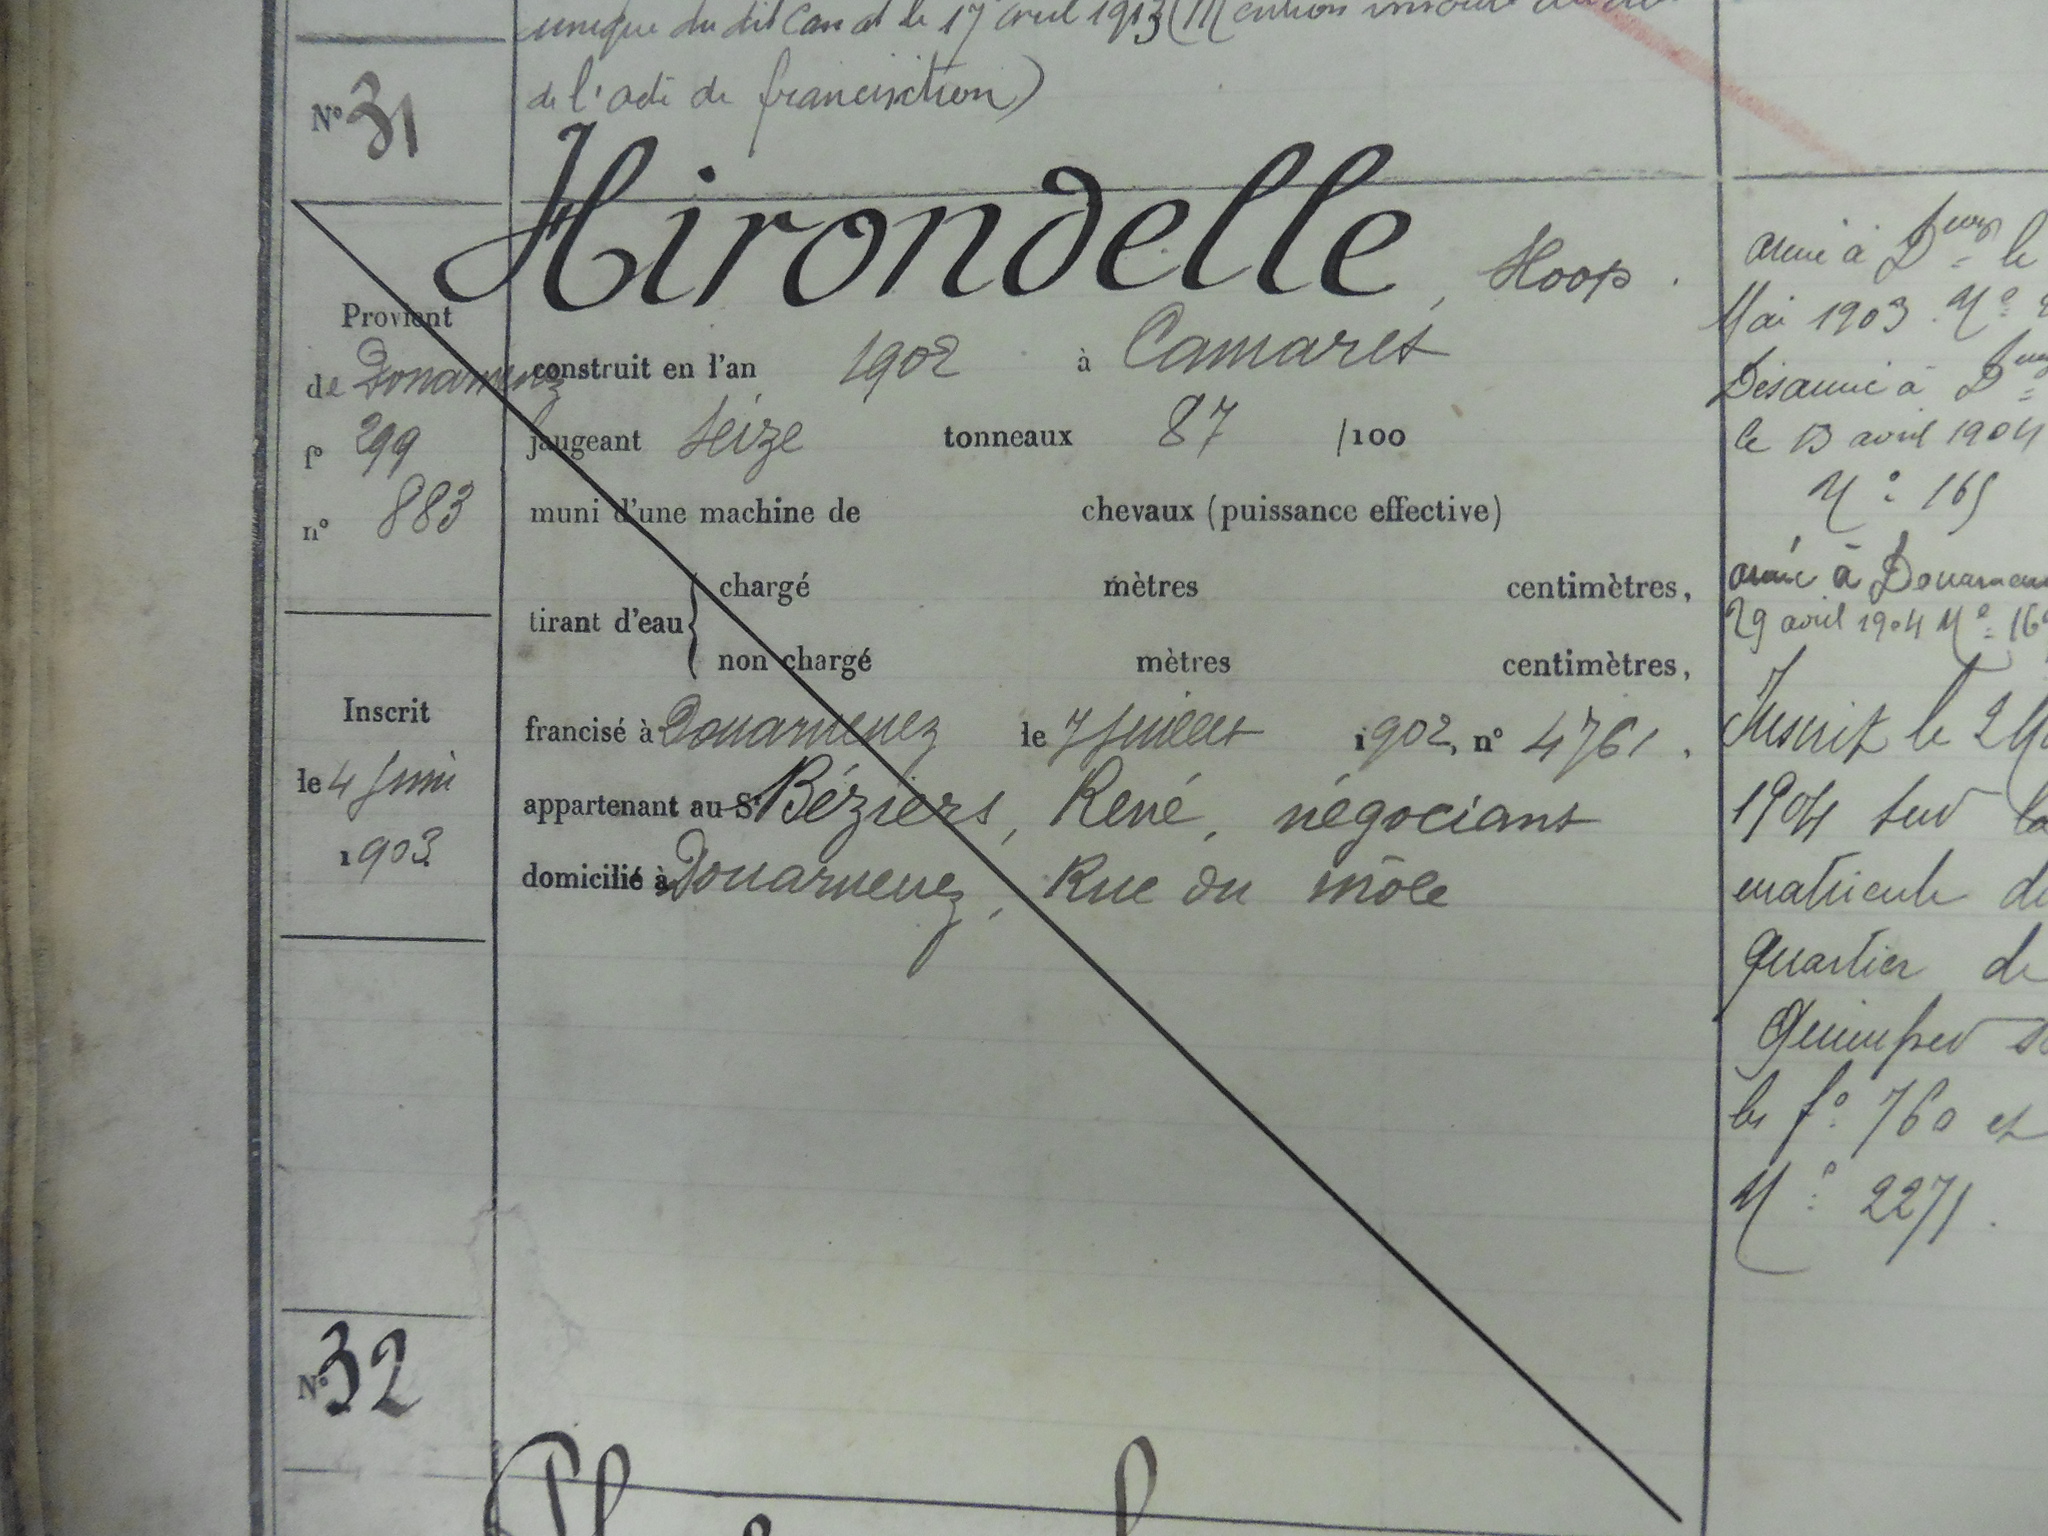 unique du dit Canot le 17 avril 1913 (Mention
de l'acte de francisation)
N° 31
Hirondelle, Sloop.
Provient
de Douarnenez
f° 299
n° 883
Inscrit
le 4 Juin
1903
construit en l'an 1902 à Camaret
jaugeant seize tonneaux 87 /100
muni d'une machine de chevaux (puissance effective)
tirant d'eau { chargé mètres centimètres,
non chargé mètres centimètres,
francisé à Douarnenez le 7 Juillet 1902, n° 4761.
appartenant au Sr Béziers, René, négociant
domicilié à Douarnenez, Rue du môle
armé à Dnez le
Mai 1903 N°
Désarmé à Dnez
le 13 avril 1904
N° 165
armé à Douarnen
29 avril 1904 N° 16
Inscrit le 2
1904 sur la
matricule de
quartier de
Quimper
les f° 760 et
N° 2271.
N° 32